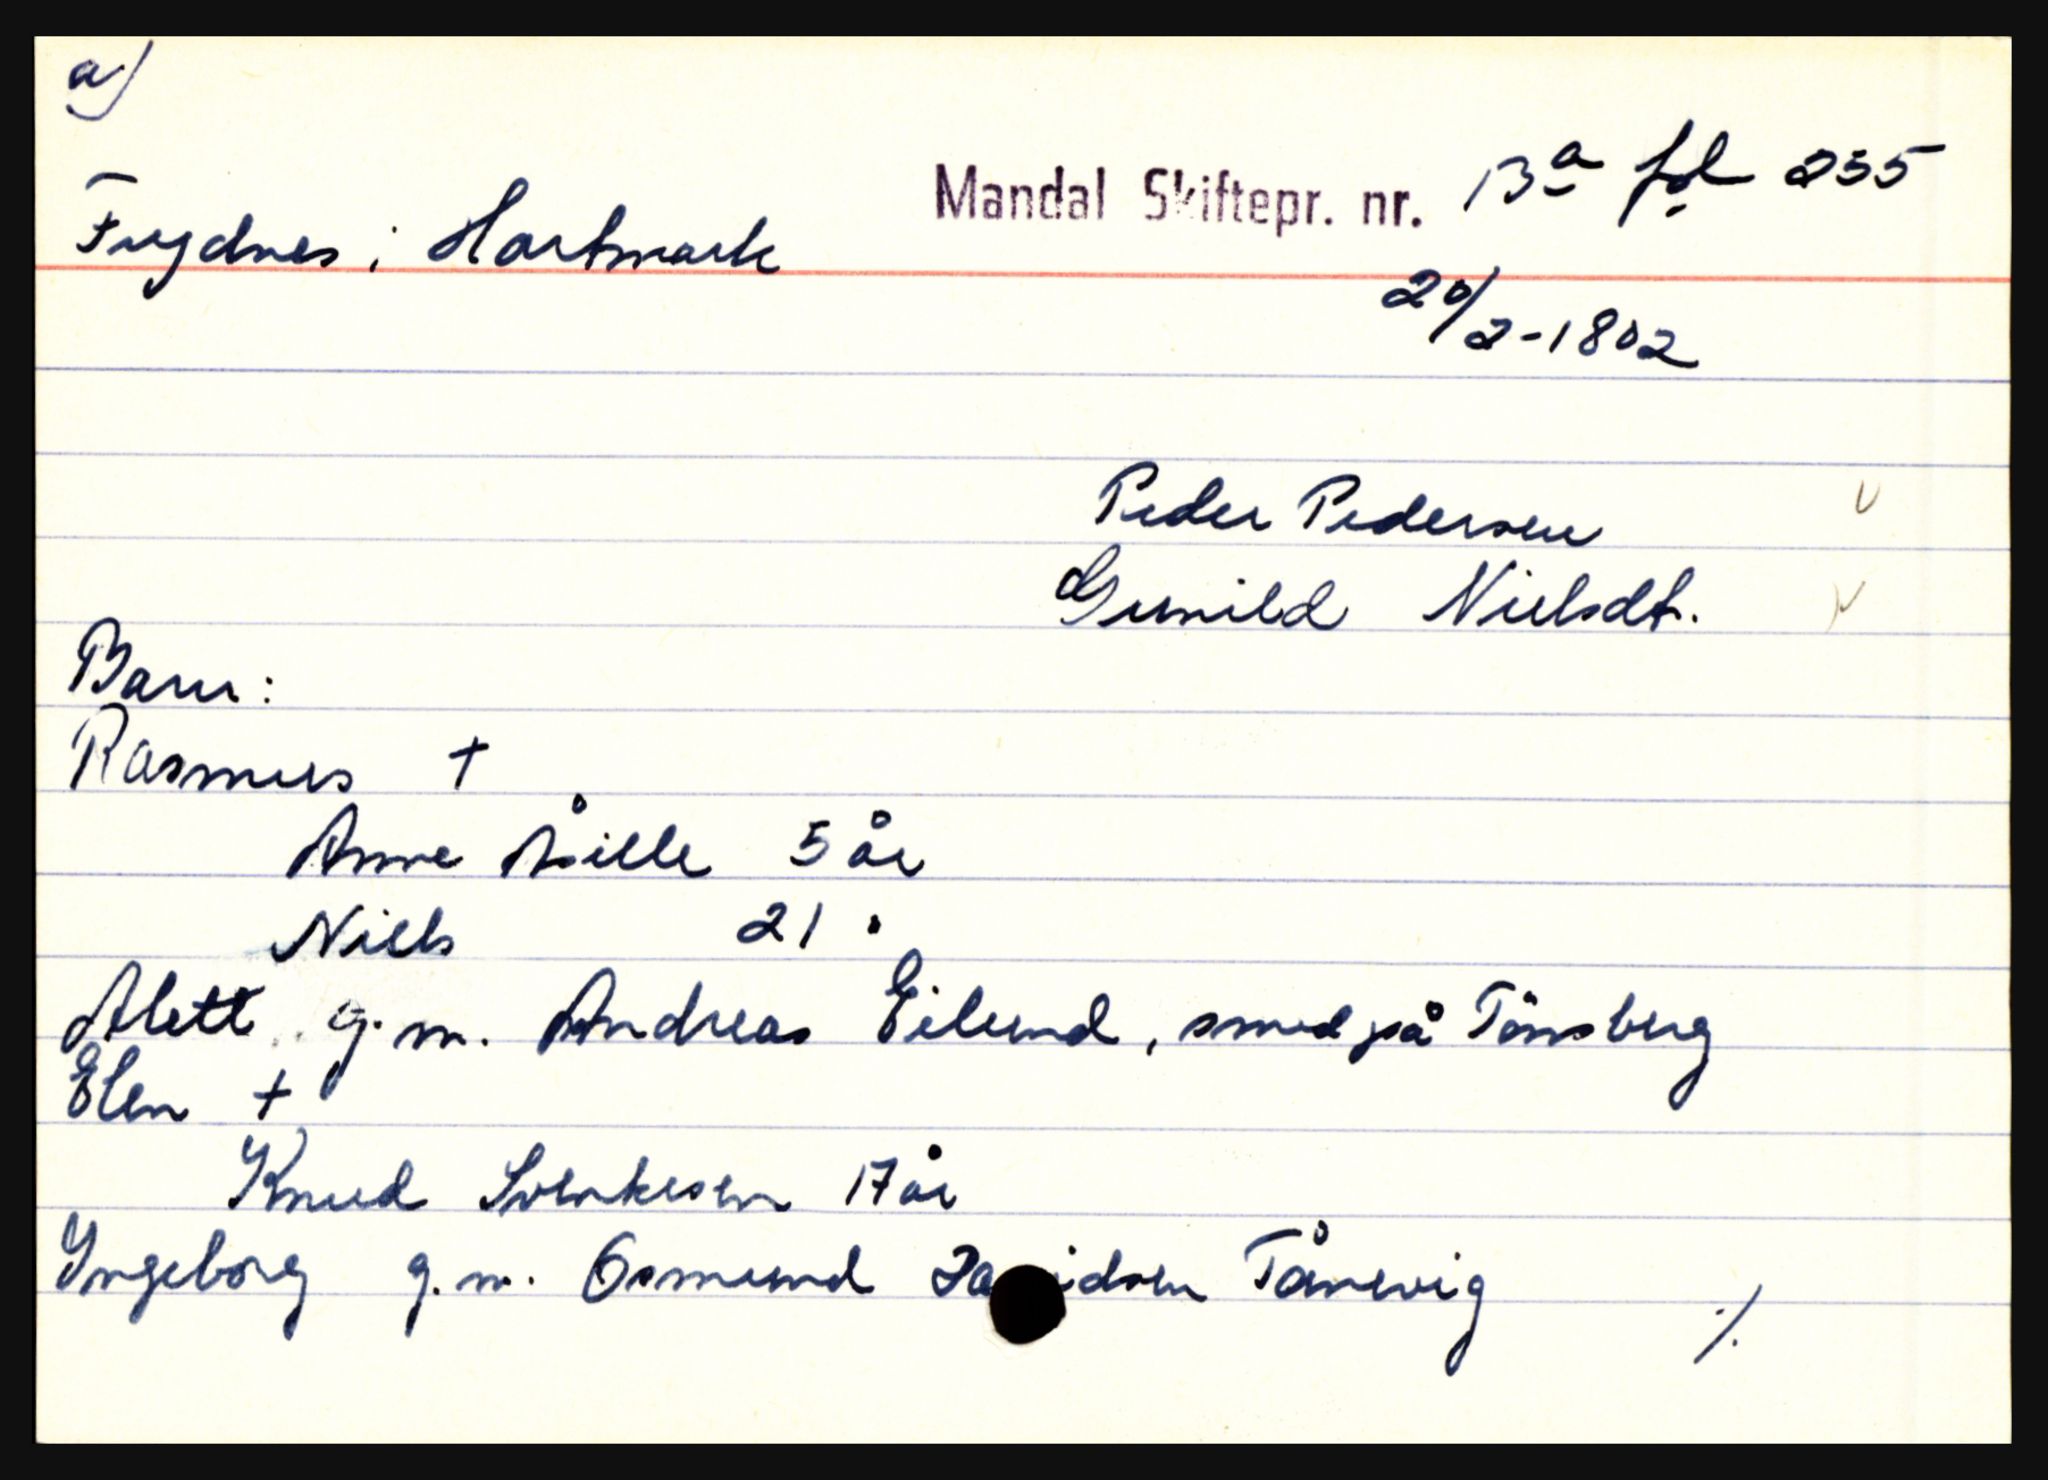 a)
Mandal Skiftepr. nr. 13a fol 255
Frydnes i Hartmark
20/2-1802
Peder Pedersen
Gunild Nielsdt.
Barn:
Rasmus +
Anne Åsille 5 år
Niels 21 "
Alett g.m. Andreas Eilund, smed på Tönsberg
Elen +
Knud Svenkesen 17 år
Yngeborg g.m. Osmund Davidsen Tånevig
./.